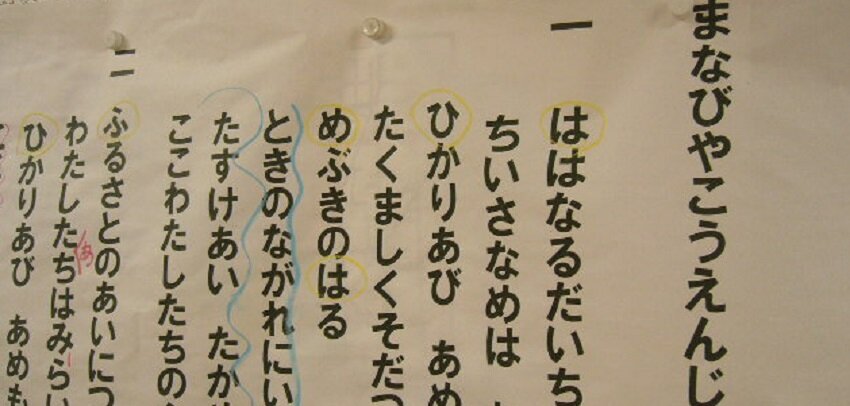 まなびやこうえんじ
一
ははなるだいち
ちいさなめは
ひかりあび あめ
たくましくそだつ
めぶきのはる
ときのながれにい
たすけあい たかめ
ここわたしたちの
二
ふるさとのあいにつ
わたしたちはみらい
あ
ひかりあび あめも